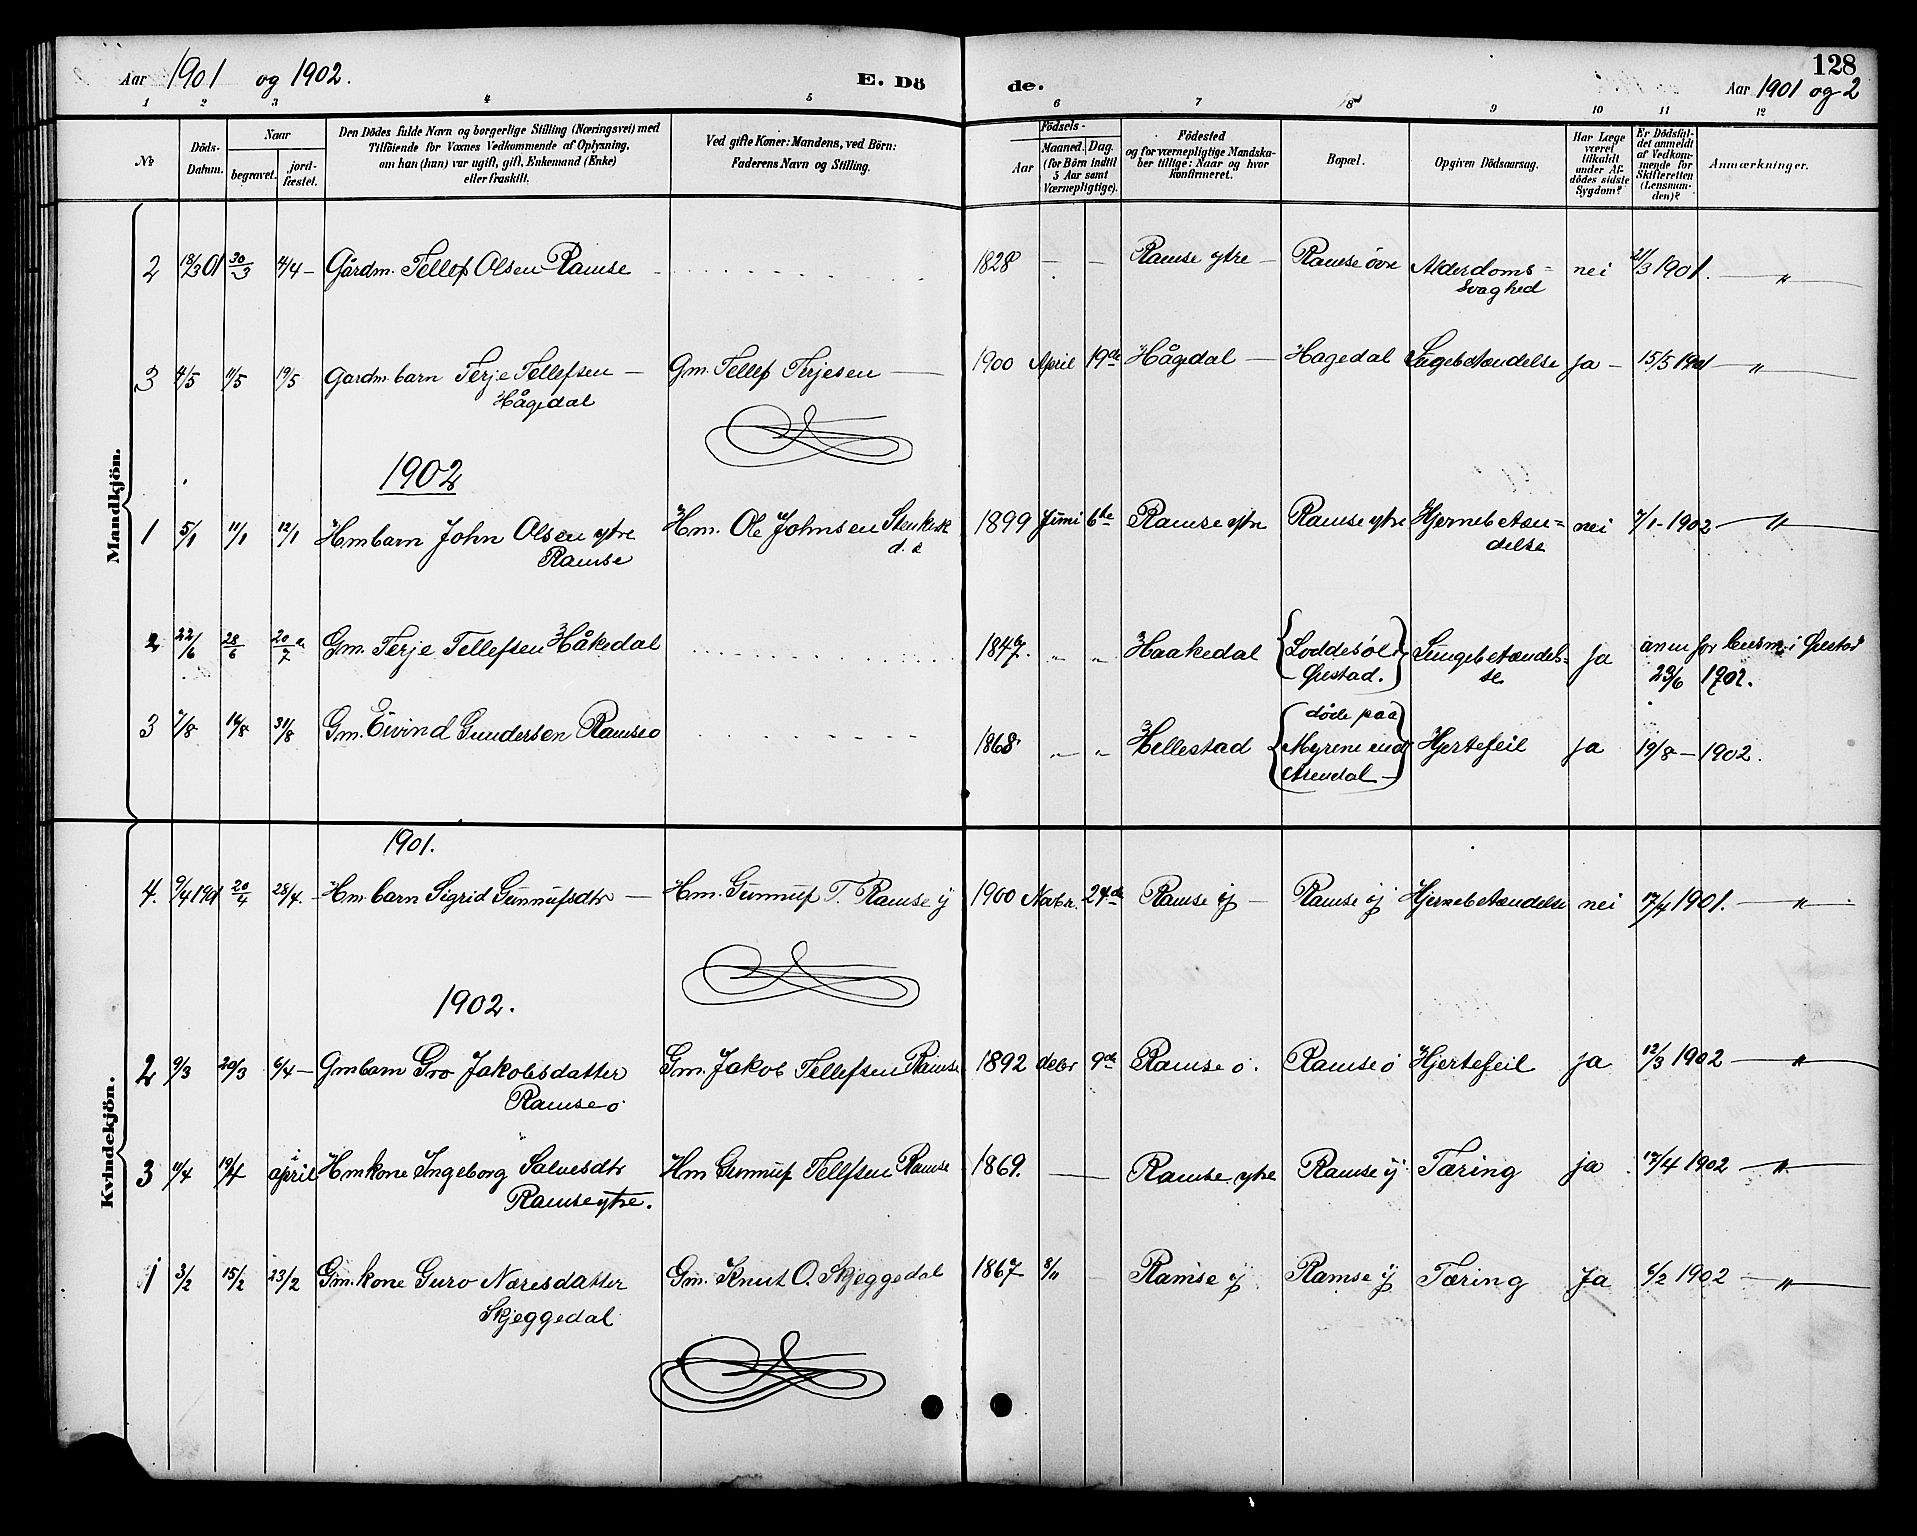 Aar 1901 og 1902. E. Dö de. Aar 1901 og 2
128
1 2 3 4 5 6 7 8 9 10 11 12
No
Döds-Datum.
Naar
begravet.
jordfæstet.
Den Dödes fulde Navn og borgerlige Stilling (Næringsvei) med
Tilföiende for Voxnes Vedkommende af Oplysning,
om han (han) var ugift, gift, Enkemand (Enke)
eller fraskilt.
Ved gifte Koner: Mandens, ved Börn:
Faderens Navn og Stilling.
Födsels-
Aar
Maaned. Dag.
(for Börn indtil
5 Aar samt
Værnepligtige).
Födested
og for værnepligtige Mandskaber tillige: Naar og hvor
konfirmeret.
Bopæl.
Opgiven Dödsaarsag.
Har Læge
været
tilkaldt
under Afdödes sidste
Sygdom?
Er Dödsfaldet anmeldt
af Vedkommende for
Skifteretten
(Lensmanden)?
Anmærkninger.
Mandkjön.
2 18/3 01 30/3 4/4 - Gårdm. Tellef Olsen Ramse 1828 - - Ramse ytre - Ramse övre Alderdoms= nei 21/3 1901. "
svaghed
3 4/5 11/5 19/5 Gardm. barn Terje Tellefsen - Gm. Tellef Terjesen - 1900 April 19de Hågedal - Hagedal Lungebetændelse ja - 15/5 1901 "
Hågedal
1902
1 5/1 11/1 12/1 Hm barn John Olsen ytre Hm. Ole Johnsen 1899 Juni 6te Ramse ytre Ramse ytre Hjernebetæn= nei 7/1 - 1902 "
Ramse delse
2 22/6 28/6 20/7 Gm. Terje Tellefsen Håkedal 1847. " " Haakedal Loddesöl Lungebetændel= Ja anm for lensm. i
Öiestad. se 23/6 1902.
3 7/8 14/8 31/8 Gm. Eivind Gundersen Ramse ö 1868 " " Hellestad döde paa Hjertefeil ja 19/8 - 1902.
Myrene
Arendal -
Kvindekjön.
1901.
4. 9/4 1901 20/4 28/4. Hm. barn Sigrid Gunnufsdtr - Hm. Gunnuf T. Ramse y 1900 Novbr. 24de Ramse y - Ramse y Hjernebetændelse nei 17/4 1901. "
1902.
2 9/3 20/3 6/4 - Gm barn Gro Jakobsdatter Gm. Jakob Tellefsen Ramse 1892 debr 9de Ramse ö. Ramse ö Hjertefeil ja 12/3 1902 "
Ramse ö
3 11/4 19/4 i april Hm kone Ingeborg Salvesdtr Hm Gunnuf Tellefsen Ramse 1869. Ramse ytre Ramse y Tæring ja 17/4 1902 "
Ramse ytre.
1 3/2 15/2 23/2 Gm. kone Guro Næresdatter Gm. Knut O. Skjeggedal 1867 8/11 - Ramse y Ramse y Tæring Ja 6/2 1902 "
Skjeggedal